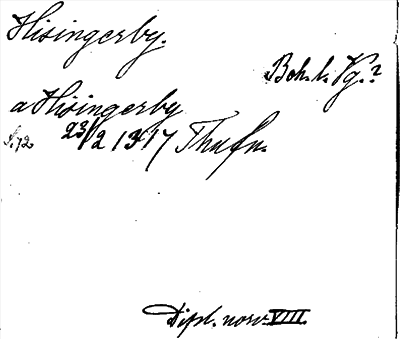 Hisingerby.
Boh. l. Vg.?
a Hisingerby
S. 72. 23/2 1317
Dipl. norv. VIII.